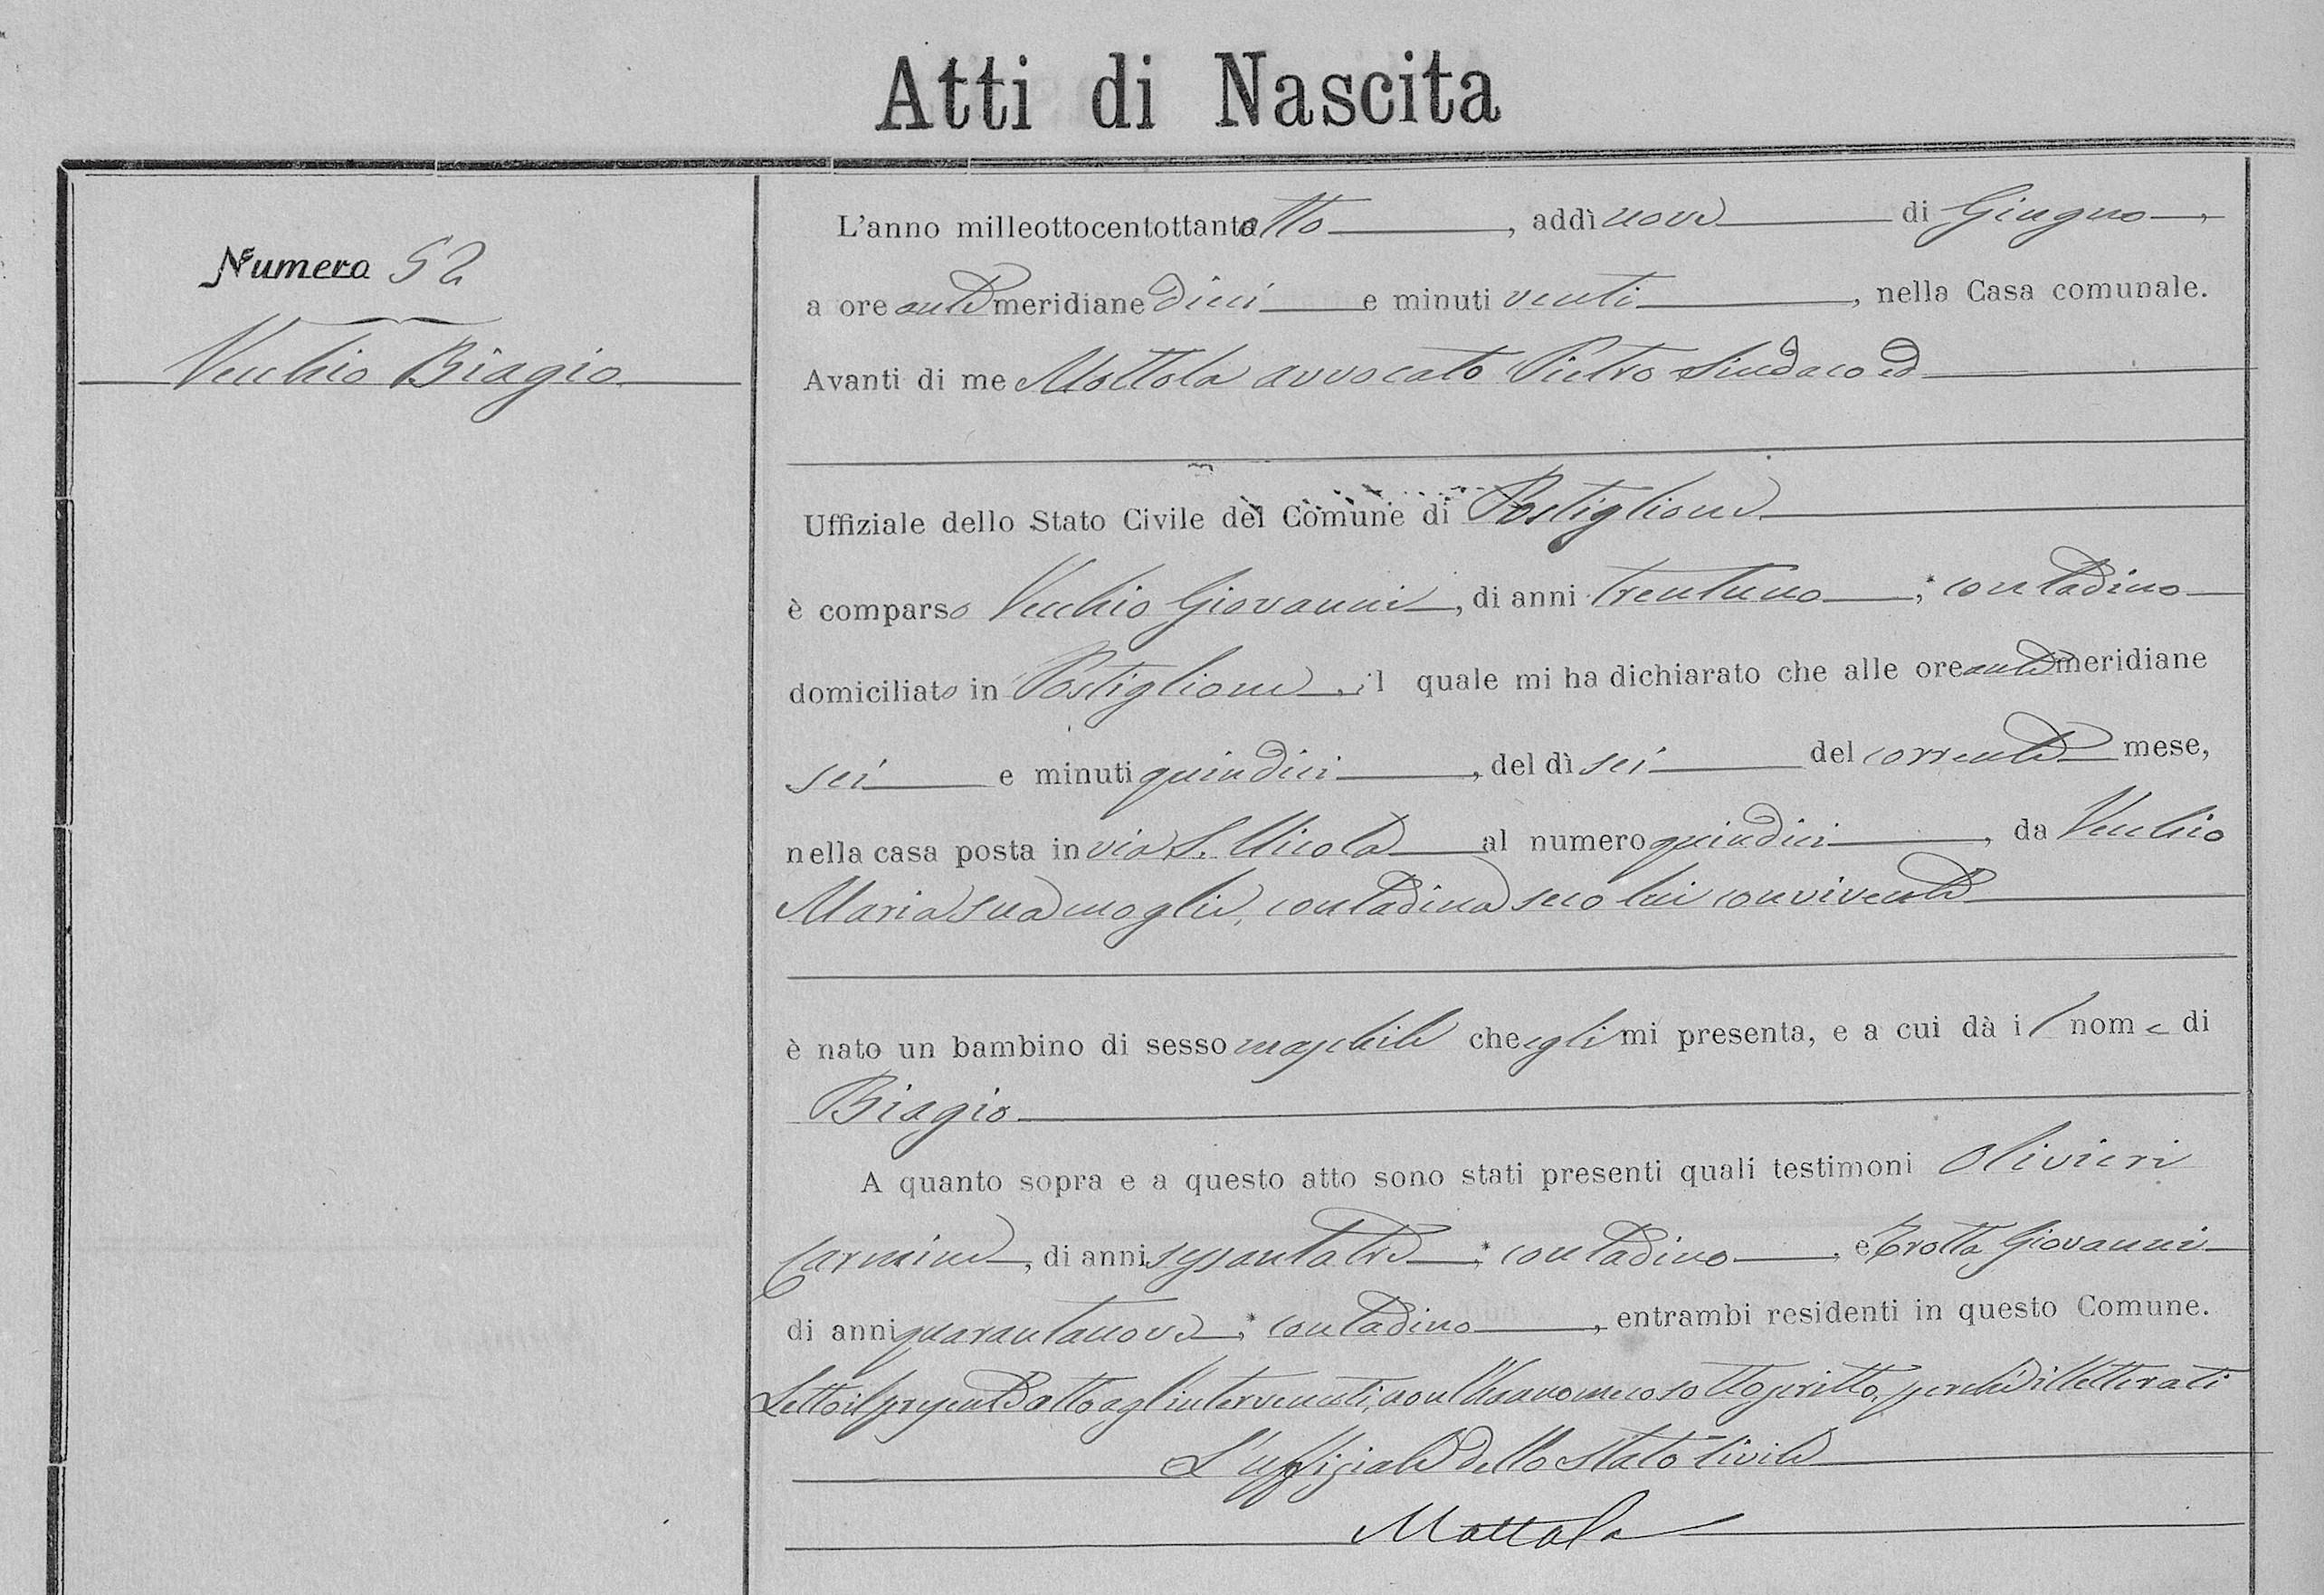 Atti di Nascita
Numero 52
Vecchio Biagio
L'anno milleottocentottantotto, addì nove di Giugno,
a ore antemeridiane dieci e minuti venti, nella Casa comunale.
Avanti di me Mottola avvocato Pietro Sindaco ed
Uffiziale dello Stato Civile del Comune di Postiglione
è comparso Vecchio Giovanni, di anni trentuno, contadino
domiciliato in Postiglione, il quale mi ha dichiarato che alle ore antemeridiane
sei e minuti quindici, del dì sei del corrente mese,
nella casa posta in via S. Nicola al numero quindici, da Vecchio
Maria sua moglie, contadina seco lui convivente
è nato un bambino di sesso maschile che egli mi presenta, e a cui dà il nome di
Biagio
A quanto sopra e a questo atto sono stati presenti quali testimoni Olivieri
Carmine, di anni sessantatre, contadino, e Trotta Giovanni
di anni quarantanove, contadino, entrambi residenti in questo Comune.
Letto il presente atto agl'intervenuti, non l'hanno meco sottoscritto, perchè illetterati
L'uffiziale dello Stato Civile
Mottola